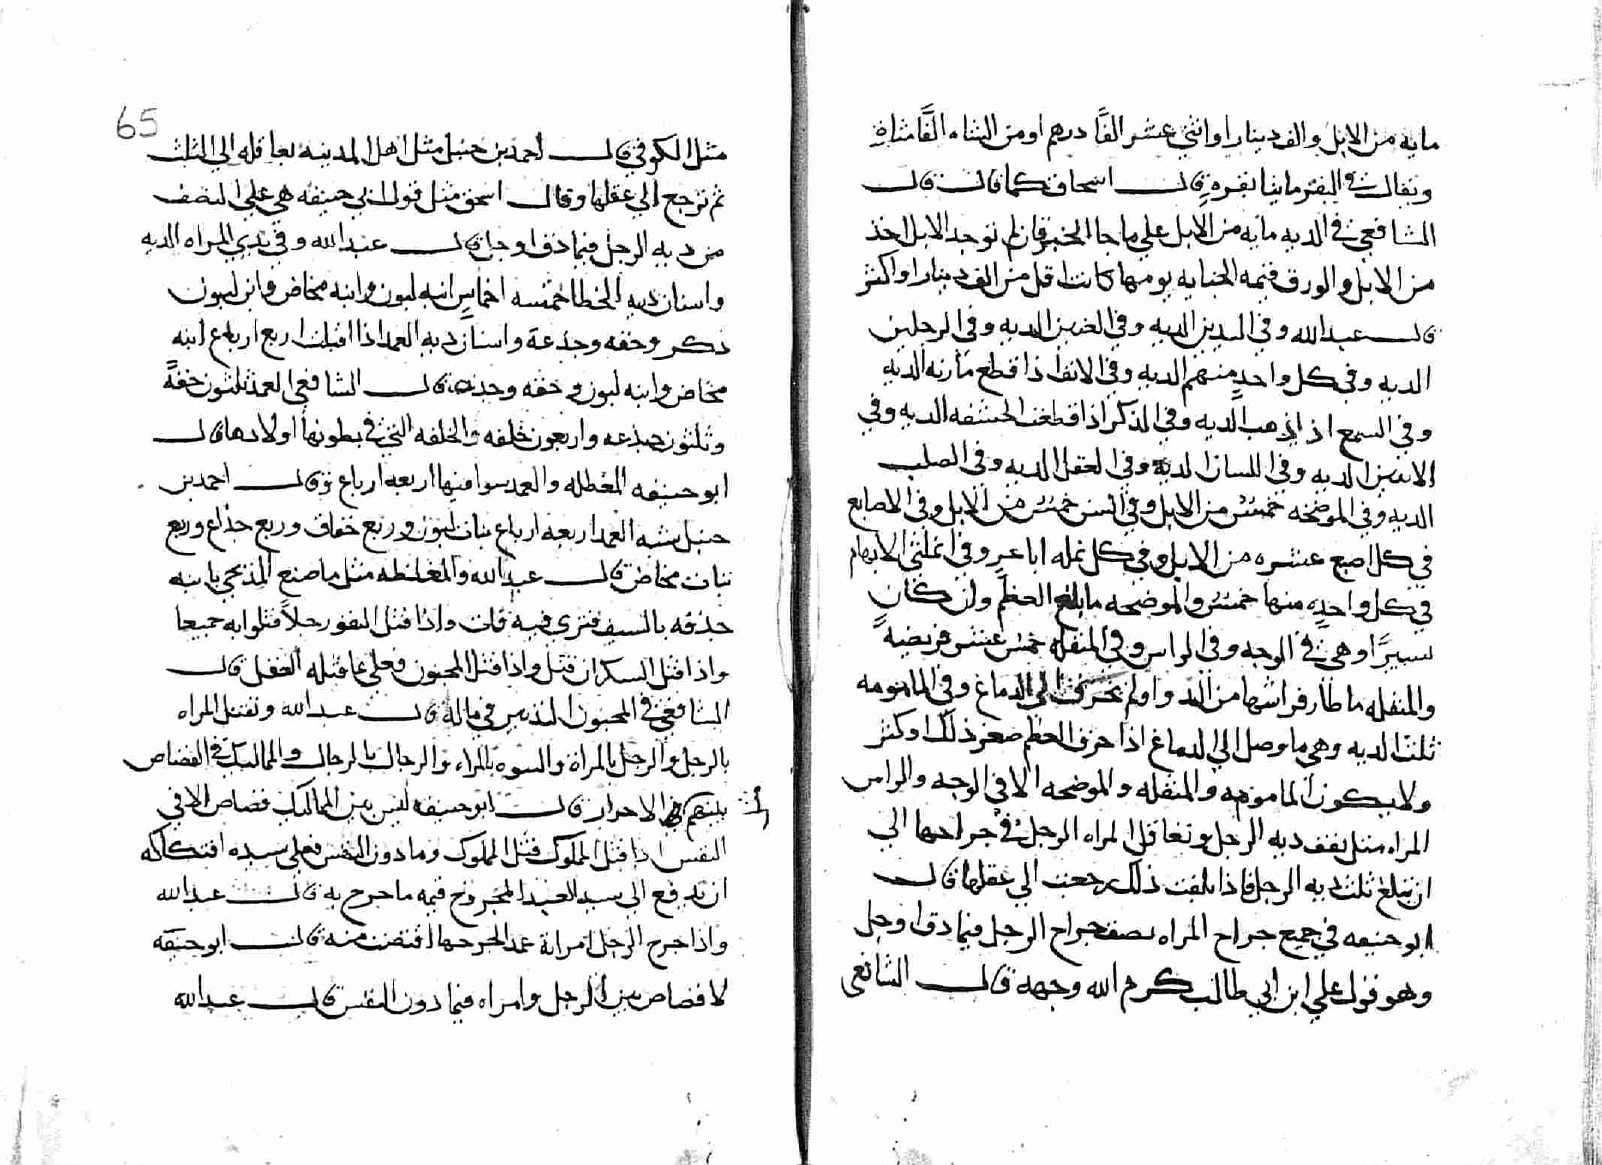 مايه من الابل والف دينار او اثنى عشر الفًا درهم او من الشاه الفًا شاة
ويقال في البقر مايتا بقره قال كما قال
الشافعي في الديه مايه من الابل على ما جا الخبر فان لم توجد الابل اخذ
من الابل والورق قيمه الجنايه يومها كانت اقل من الف دينار او اكثر
قال عبد الله وفي اليدين الديه وفي العينين الديه وفي الرجلين
الديه وفي كل واحد منهم الديه وفي الانف اذا قطع مارنه الديه
وفي السمع اذا ذهب الديه وفي الذكر اذا قطعت الحشفه الديه وفي
الانثيين الديه وفي اللسان الديه وفي العقل الديه وفي الصلب
الديه وفي الموضحه خمس من الابل وفي السن خمس من الابل وفي الاصابع
في كل اصبع عشره من الابل وفي كل نمله اباعر وفي انملتي الابهام
في كل واحده منها خمس والموضحه ما بلغ العظم وان كان
يسيرًا وهي في الوجه وفي الراس وفي المنقله خمس عشر فريضه
والمنقله ما طار فراشها من اليد او لم تخرق الى الدماغ وفي المامومه
ثلث الديه وهي ما وصل الى الدماغ اذا خرق العظم صغر ذلك او كثر
ولا يكون المامومه والمنقله والموضحه الا في الوجه والراس
المراه مثل نصف ديه الرجل وتعاقل المراه الرجل في جراحها الى
ان تبلغ ثلث ديه الرجل فاذا بلغت ذلك رجعت الى عقلها قال
ابو حنيفه في جميع جراح المراه نصف جراح الرجل فيما دق او جل
وهو قول علي ابن ابي طالب كرم الله وجهه قال الشافعي
65
مثل الكوفي قال احمد بن حنبل مثل اهل المدينه تعاقله الى الثلث
ثم ترجع الى عقلها وقال اسحق مثل قول ابي حنيفه هي على النصف
من ديه الرجل فيما دق او جل قال عبد الله وفي ثدي المراه الديه
واسنان ديه الخطا خمسه اخماس ابنه لبون وابنه مخاض وابن لبون
ذكر وحقه وجذعة واسنان ديه العمد اذا اقبلت اربع ارباع ابنه
مخاض وابنه لبون وحقه وجذعه قال الشافعي العمد ثلثون حقةً
وثلثون جذعه واربعون خلفه والخلفه التي في بطونها اولادها قال
ابو حنيفه المغلظه والعمد سوا منها اربعه ارباع وقال احمد بن
حنبل شبه العمد اربعه ارباع بنات لبون وربع حقاق وربع جذاع وربع
بنات مخاض قال عبد الله والمغلظه مثل ما صنع المذحجي بابنه
حذفه بالسيف فنزي فيه فمات واذا قتل النفر رجلاً قتلوا به جميعا
واذا قتل السكران قتل واذا قتل المجنون فعلى عاقلته العقل قال
الشافعي في المجنون اليدين في ماله قال عبد الله وتقتل المراه
بالرجل والرجل بالمراة والنسوه بالمراه والرجال بالرجال والمماليك في القصاص
بينهم كالاحرار قال ابو حنيفه ليس بين المماليك قصاص الا في
النفس اذا قتل المملوك قتل المملوك وما دون النفس فعلى سيده افتكاكه
ان يدفع الى سيد العبد المجروح قيمه ما جرح به قال عبد الله
واذا جرح الرجل امراة عمد الجرحها اقتصت منه قال ابو حنيفه
لا قصاص بين الرجل وامراه فيما دون النفس قال عبد الله